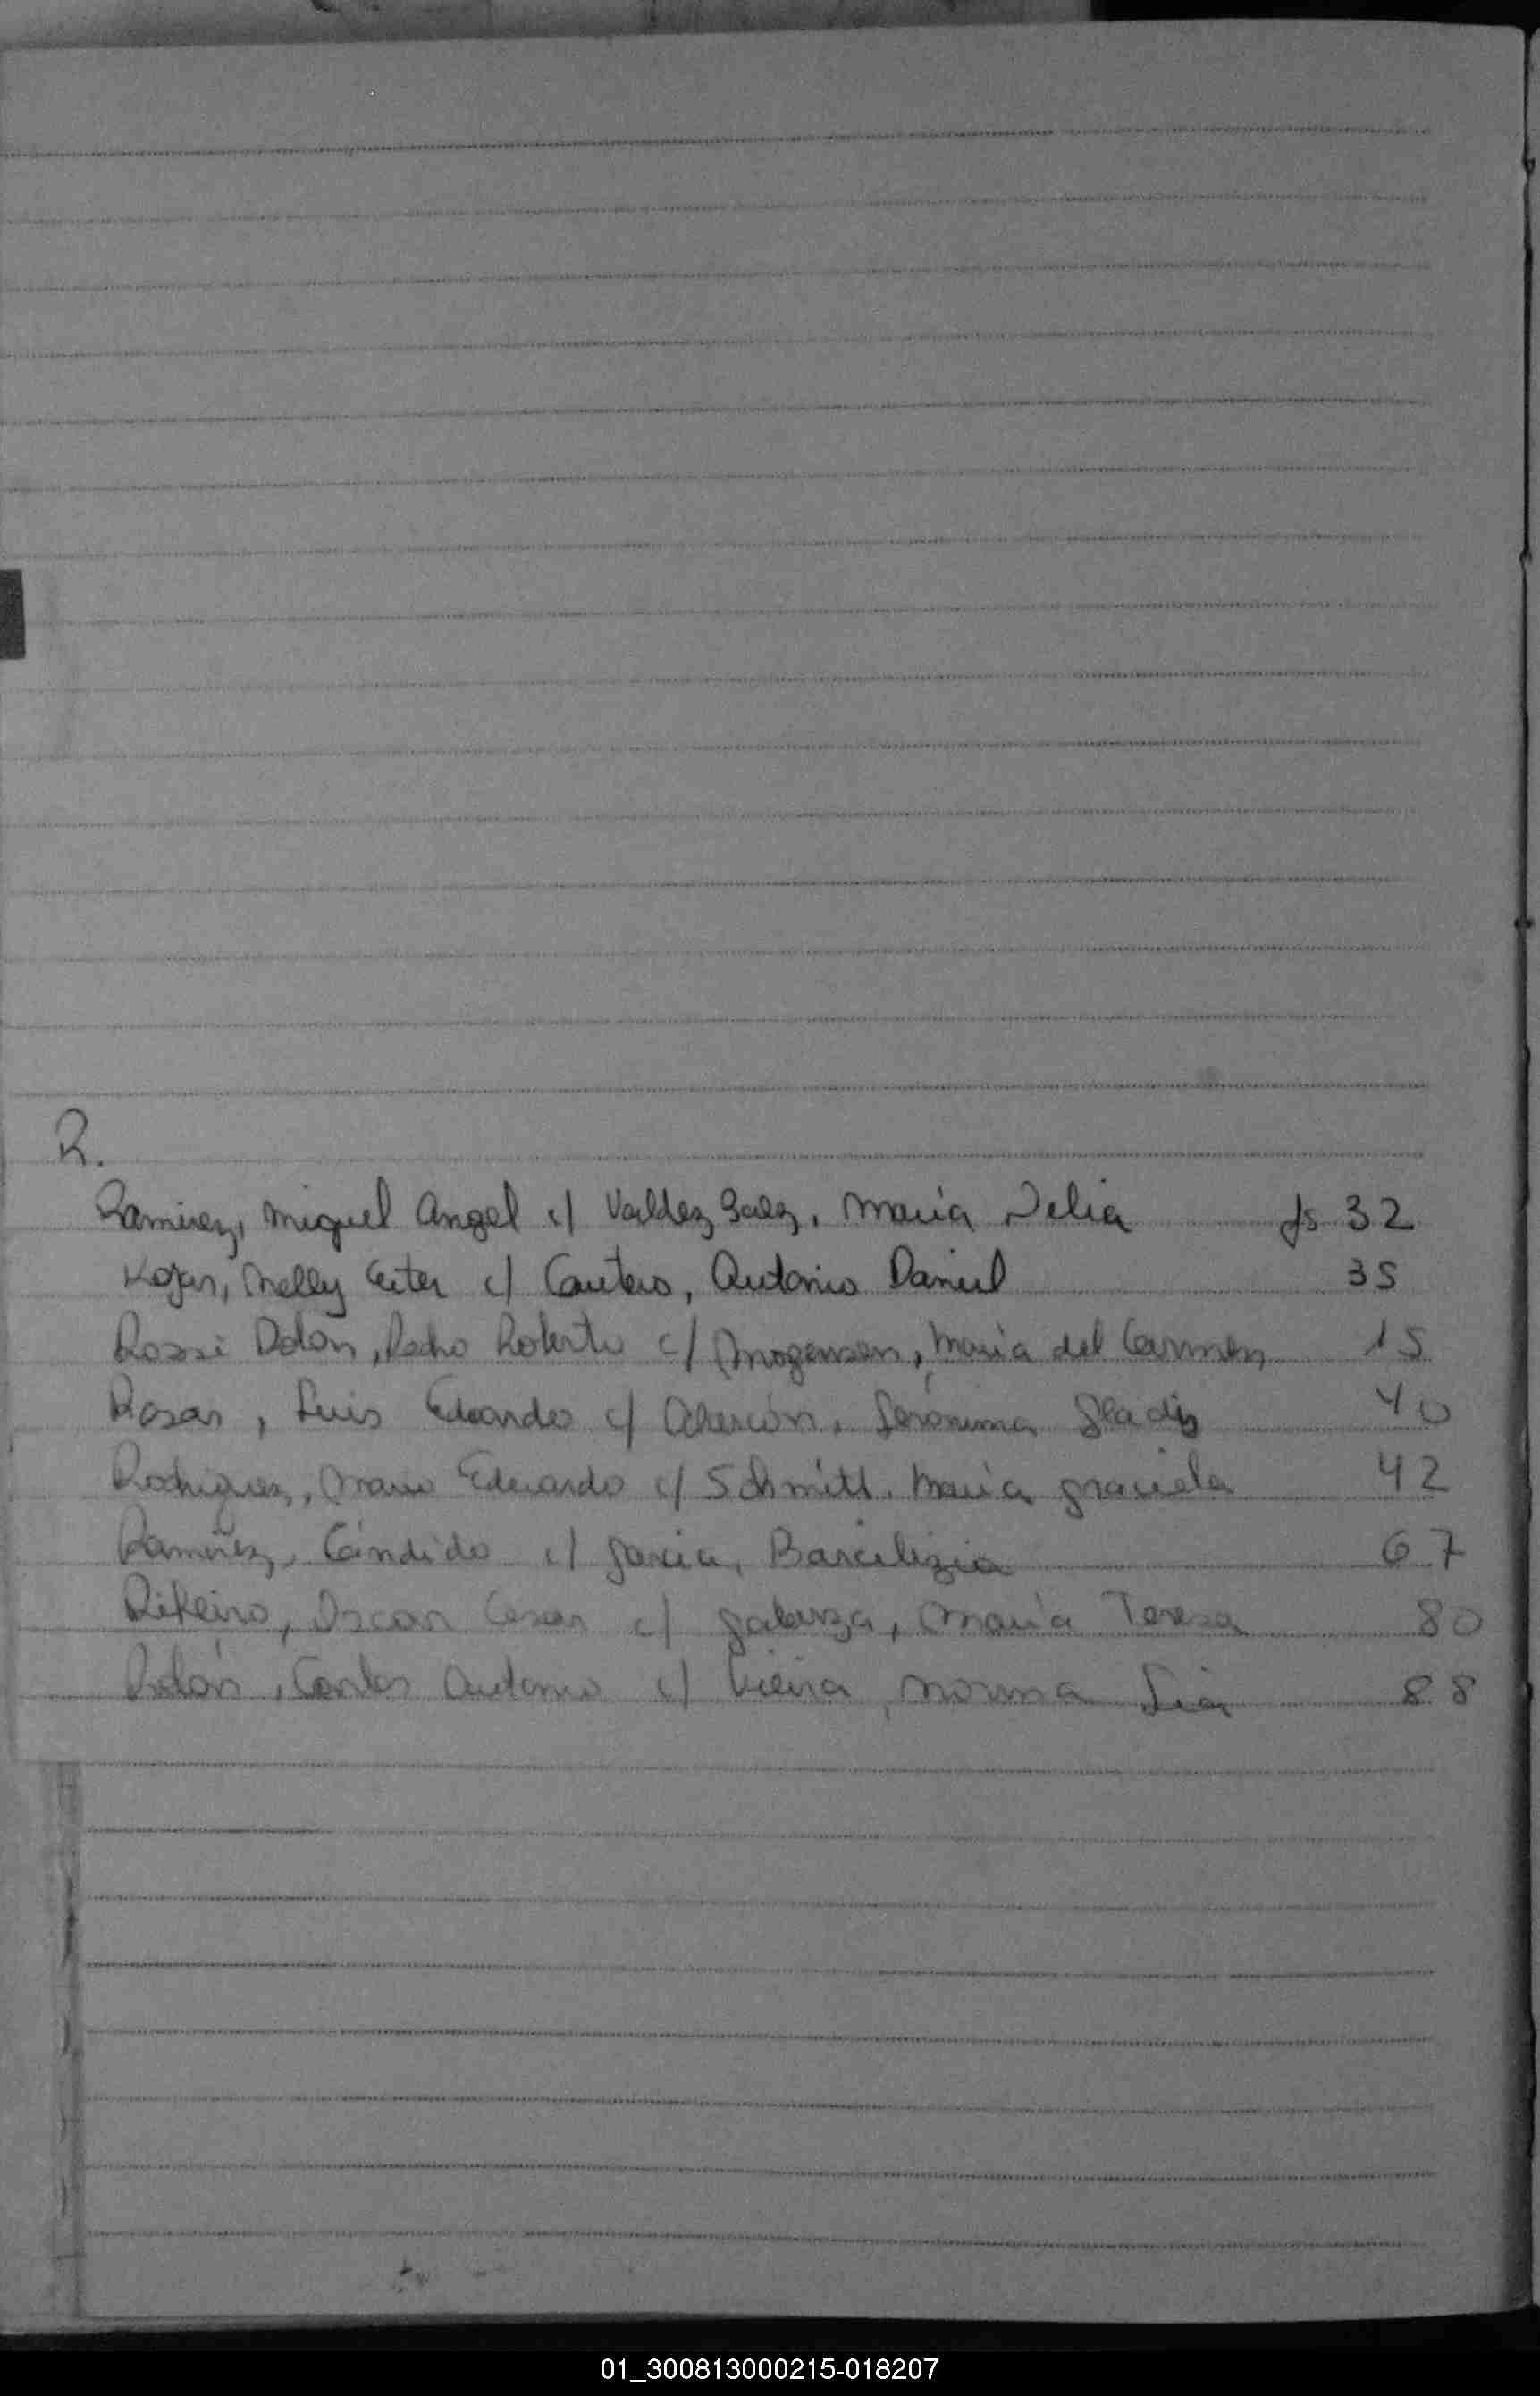 R.
Ramirez, Miguel Angel c/ Valdez Saez, María Delia fs 32
Rojas, Nelly Ester c/ Cantero, Antonio Daniel 35
Rossi Dolan, Pedro Roberto c/ Mogensen, María del Carmen 15
Rosas, Luis Eduardo c/ Alarcón, Gerónima Gladis 40
Rodriguez, Mario Eduardo c/ Schmitt, María Graciela 42
Ramírez, Cándido c/ Garcia, 67
Ribeiro, Oscar Cesar c/ Galarza, María Teresa 80
Rolón, Carlos Antonio c/ Vieira, Norma Lia 88
01_300813000215-018207